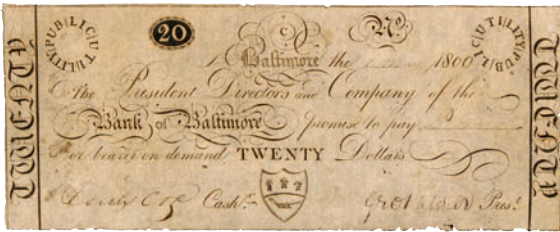 PUBLIC UTILITY
20
C
No.
PUBLIC UTILITY
TWENTY
TWENTY
Baltimore the 1800
The President Directors and Company of the
Bank of Baltimore promise to pay
or bearer on demand TWENTY Dollars
Cashr. Prest.